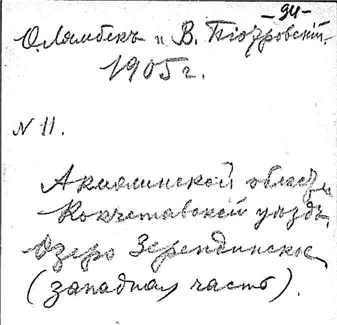 -94-
О. Лямбекъ и В. Піотровскій.
1905 г.
N 11.
Акмолинской область
Кокчетавской уѣздъ.
Озеро Зерендинское
(западная часть).